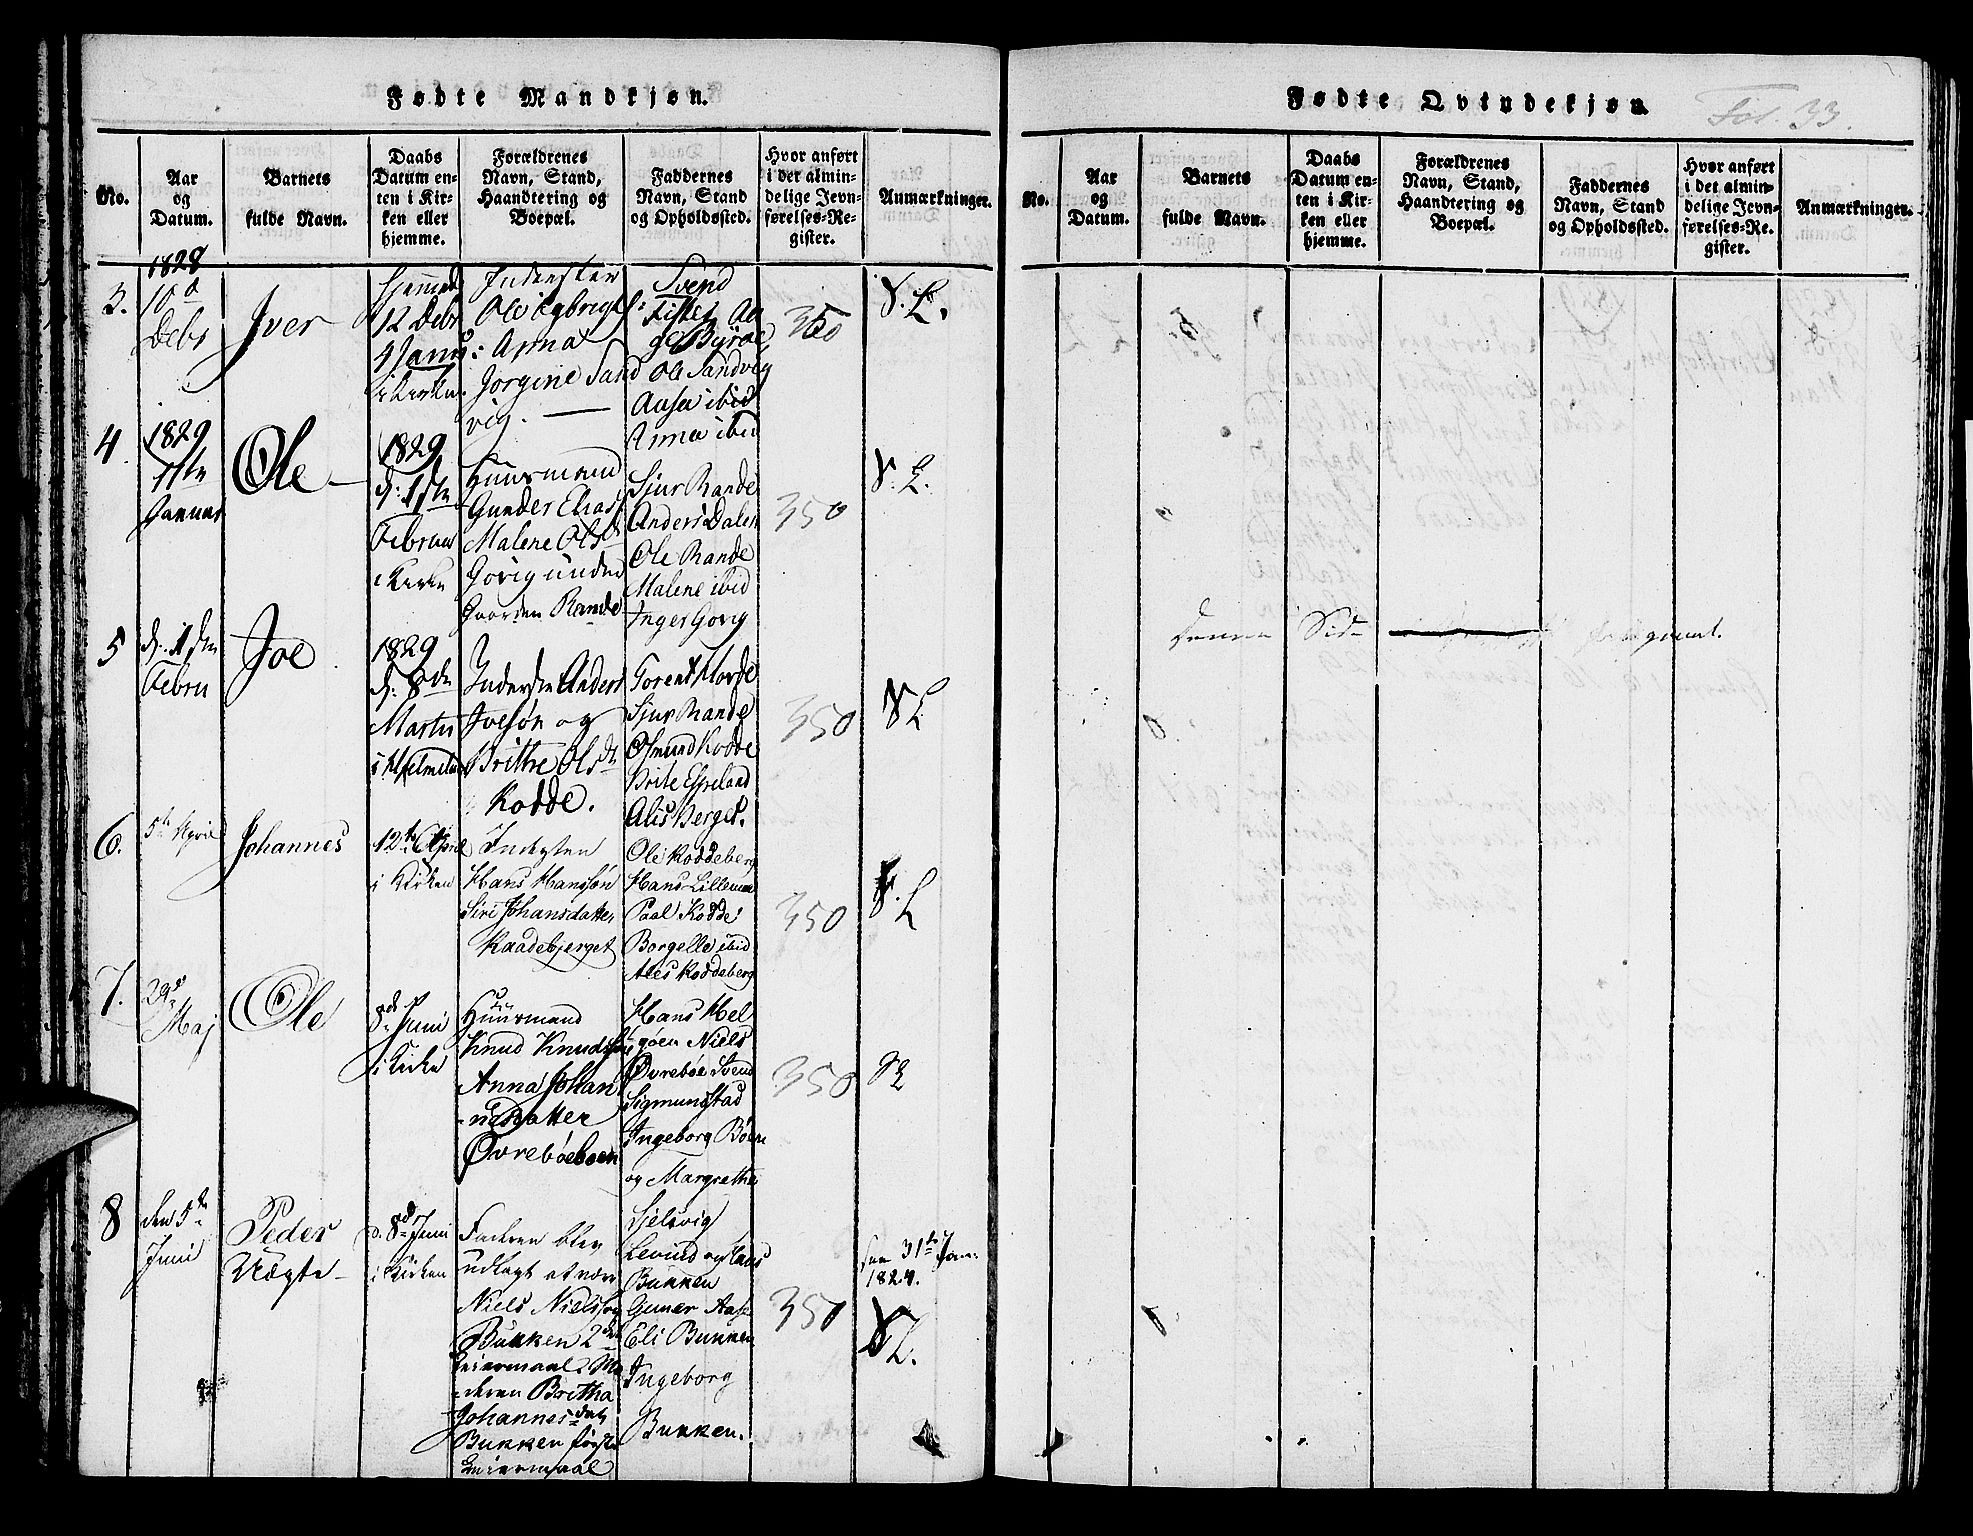 Fødte Mandkjøn.
No.
Aar
og
Datum.
Barnets
fulde Navn.
Daabs
Datum en-
ten i Kir-
ken eller
hjemme.
Forældrenes
Navn, Stand,
Haandtering og
Boepæl.
Faddernes
Navn, Stand
og Opholdssted.
Hvor anført
i det almin-
delige Jevn-
førelses-Re-
gister.
Anmærkninger.
3.
1828
10
Debr
Iver
hjemmed
12 Debr
4 Janu
i Kirken
Inderster
Ole Egbrigts:
Anna
Jorgine Sand
vig.
Svend
Fister Aa
ge Byrøe,
Ole Sandvig
Aasa ibid
Anna ibid
350
S. L.
4
1829
11te
Januar
Ole
1829
d: 1ste
Februar
i Kirke
Huusmand
Gunder Elias
Malene Olsd
Gorig under
Gaarden Rande
Sjur Rande
Anders Dalen
Ole Rande
Malene ibid
Inger Gorig
350
S. L.
5
d: 1ste
Febru
Joe
1829
d: 8de
Martii
i Hjelmeland
Indersten Anders
Ivesøn og
Brithe Olsd
Kodde.
Torent Horde
Sjur Rande
Osmund Kodde
Brite Espeland
Alis Berget.
350
S L
6.
5te April
Johannes
12te April
i Kirken
Indersten
Hans Hanssøn
Siri Johansdatter
Kaadebjerget
Ole Koddeberg
Hans Lilleman
Paal Kodde
Borgelle ibid
Ales Koddeberg
350
S. L
7.
29
Maj
Ole
8de Juni
i Kirke
Huusmand
Knud Knudssøn
Anna Johan
nesdatter
Øvrebøeboen
Hans Hel
gøen Niels
Øvrebøe Svend
Sigmundstad
Ingeborg Bøen
og Margrethe
350
S L
8
den 5te
Juni
Peder
Uægte
d. 8de Juni
i Kirken
Faderen blev
udlagt at være
Niels Nielssøn
Bukken 2det
Leiermaal Mo
deren Britha
Johannesdat
Bukken første
Leiermaal
Sjelsvig
Levind og Hans
Bukken
Gunar Aase
Eli Bukken
Ingeborg
Bukken.
350
31te Jan:
1824.
S L.
Fødte Qvindekjøn.
Fol. 33.
No.
Aar
og
Datum.
Barnets
fulde Navn.
Daabs
Datum en-
ten i Kir-
ken eller
hjemme.
Forældrenes
Navn, Stand,
Haandtering og
Boepæl.
Faddernes
Navn, Stand
og Opholdssted.
Hvor anført
i det almin-
delige Jevn-
førelses-Re-
gister.
Anmærkninger.
Denne Side